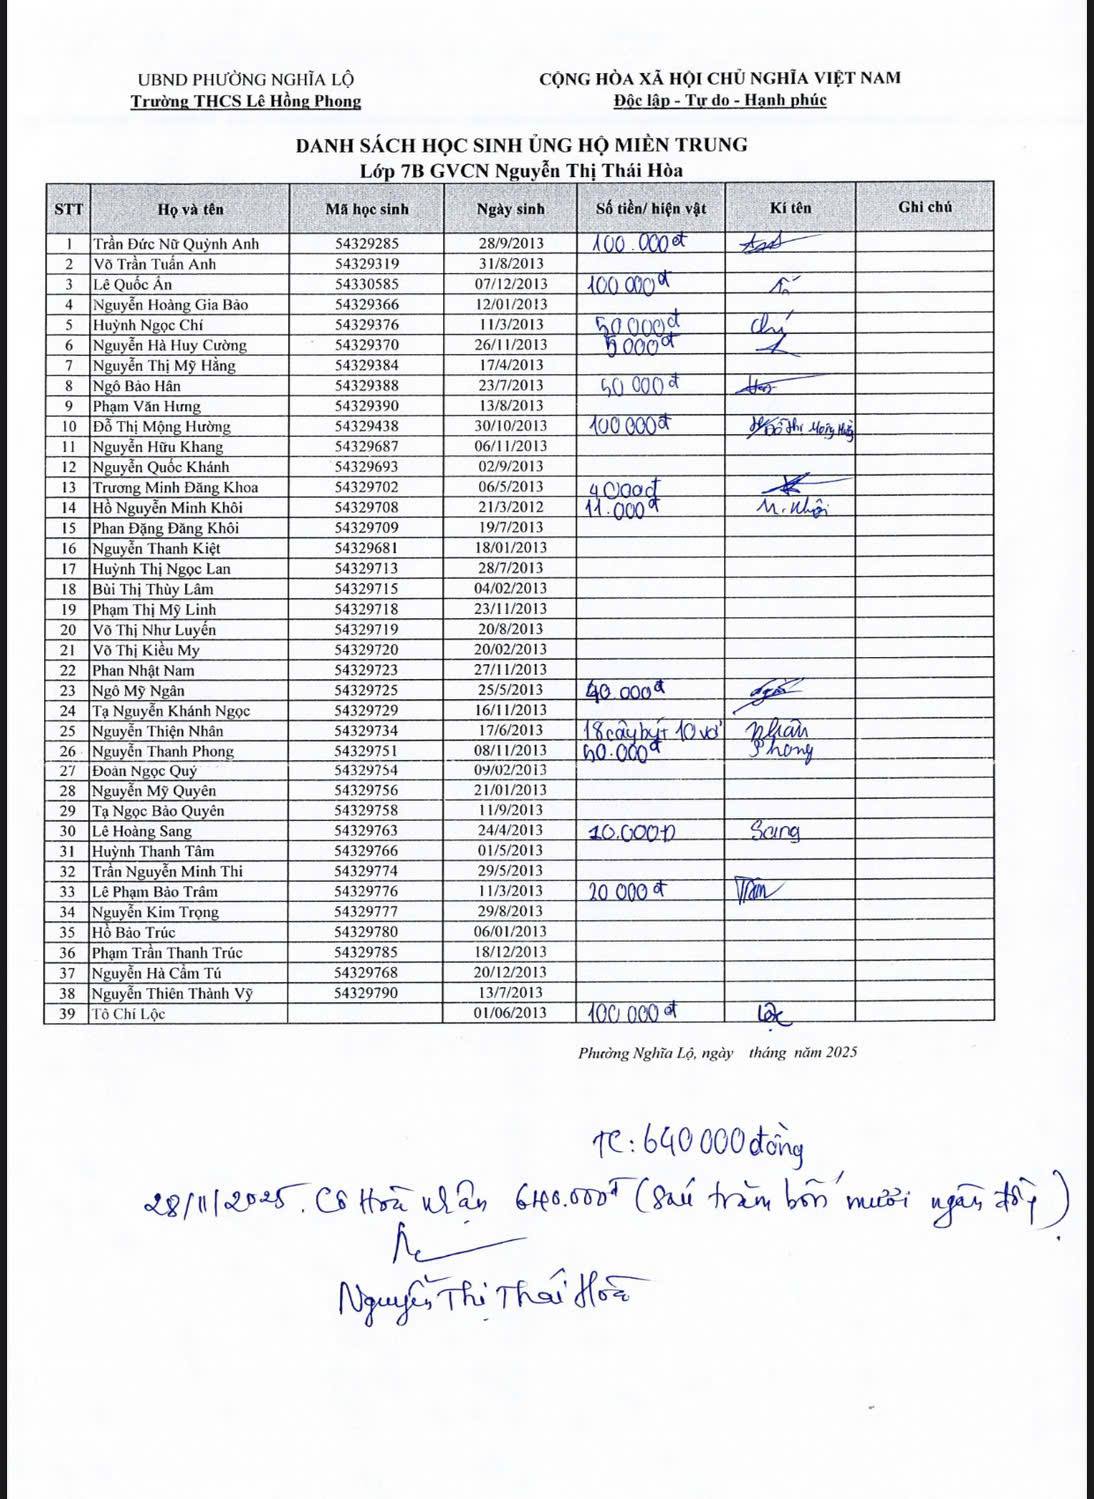 UBND PHƯỜNG NGHĨA LỘ
CỘNG HÒA XÃ HỘI CHỦ NGHĨA VIỆT NAM
Trường THCS Lê Hồng Phong
Độc lập - Tự do - Hạnh phúc
DANH SÁCH HỌC SINH ỦNG HỘ MIỀN TRUNG
Lớp 7B GVCN Nguyễn Thị Thái Hòa
STT Họ và tên Mã học sinh Ngày sinh Số tiền/ hiện vật Kí tên Ghi chú
1 Trần Đức Nữ Quỳnh Anh 54329285 28/9/2013 100.000đ
2 Võ Trần Tuấn Anh 54329319 31/8/2013
3 Lê Quốc Ấn 54330585 07/12/2013 100 000đ
4 Nguyễn Hoàng Gia Bảo 54329366 12/01/2013
5 Huỳnh Ngọc Chí 54329376 11/3/2013 50 000đ Chí
6 Nguyễn Hà Huy Cường 54329370 26/11/2013 5 000đ
7 Nguyễn Thị Mỹ Hằng 54329384 17/4/2013
8 Ngô Bảo Hân 54329388 23/7/2013 50 000đ
9 Phạm Văn Hưng 54329390 13/8/2013
10 Đỗ Thị Mộng Hường 54329438 30/10/2013 100 000đ Đỗ Thị Mộng Hường
11 Nguyễn Hữu Khang 54329687 06/11/2013
12 Nguyễn Quốc Khánh 54329693 02/9/2013
13 Trương Minh Đăng Khoa 54329702 06/5/2013 4 000đ
14 Hồ Nguyễn Minh Khôi 54329708 21/3/2012 11.000đ M. Khôi
15 Phan Đặng Đăng Khôi 54329709 19/7/2013
16 Nguyễn Thanh Kiệt 54329681 18/01/2013
17 Huỳnh Thị Ngọc Lan 54329713 28/7/2013
18 Bùi Thị Thùy Lâm 54329715 04/02/2013
19 Phạm Thị Mỹ Linh 54329718 23/11/2013
20 Võ Thị Như Luyến 54329719 20/8/2013
21 Võ Thị Kiều My 54329720 20/02/2013
22 Phan Nhật Nam 54329723 27/11/2013
23 Ngô Mỹ Ngân 54329725 25/5/2013 40.000đ
24 Tạ Nguyễn Khánh Ngọc 54329729 16/11/2013
25 Nguyễn Thiện Nhân 54329734 17/6/2013 18 cây bút 10 vở Nhân
26 Nguyễn Thanh Phong 54329751 08/11/2013 50.000đ Phong
27 Đoàn Ngọc Quý 54329754 09/02/2013
28 Nguyễn Mỹ Quyên 54329756 21/01/2013
29 Tạ Ngọc Bảo Quyên 54329758 11/9/2013
30 Lê Hoàng Sang 54329763 24/4/2013 10.000Đ Sang
31 Huỳnh Thanh Tâm 54329766 01/5/2013
32 Trần Nguyễn Minh Thi 54329774 29/5/2013
33 Lê Phạm Bảo Trâm 54329776 11/3/2013 20 000đ Trâm
34 Nguyễn Kim Trọng 54329777 29/8/2013
35 Hồ Bảo Trúc 54329780 06/01/2013
36 Phạm Trần Thanh Trúc 54329785 18/12/2013
37 Nguyễn Hà Cẩm Tú 54329768 20/12/2013
38 Nguyễn Thiên Thành Vỹ 54329790 13/7/2013
39 Tô Chí Lộc 01/06/2013 100 000đ Lộc
Phường Nghĩa Lộ, ngày tháng năm 2025
TC: 640 000 đồng
28/11/2025. Cô Hoà nhận 640.000đ (Sáu trăm bốn mươi ngàn đồng)
Nguyễn Thị Thái Hòa